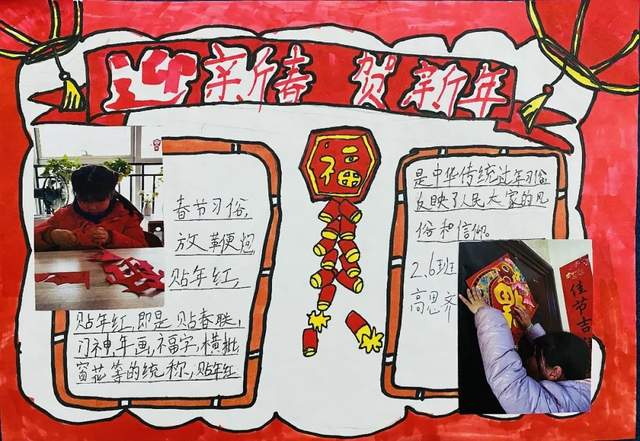 迎新春 贺新年
福
春节习俗,
放鞭炮,
贴年红,
贴年红,即是贴春联,
门神,年画,福字,横批,
窗花等的统称,贴年红
是中华传统过年习俗
反映了人民大家的风
俗和信仰。
2.6班
高思齐
佳节吉